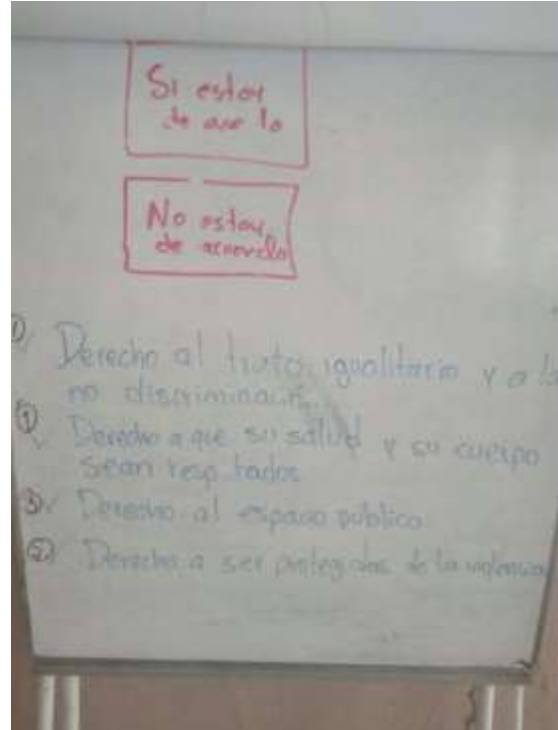 Si estoy
de acuerdo
No estoy
de acuerdo
① Derecho al trato igualitario y a la
no discriminación
① Derecho a que su salud y su cuerpo
sean resp tados
③ Derecho al espacio público
② Derecho a ser protegidos de la violencia